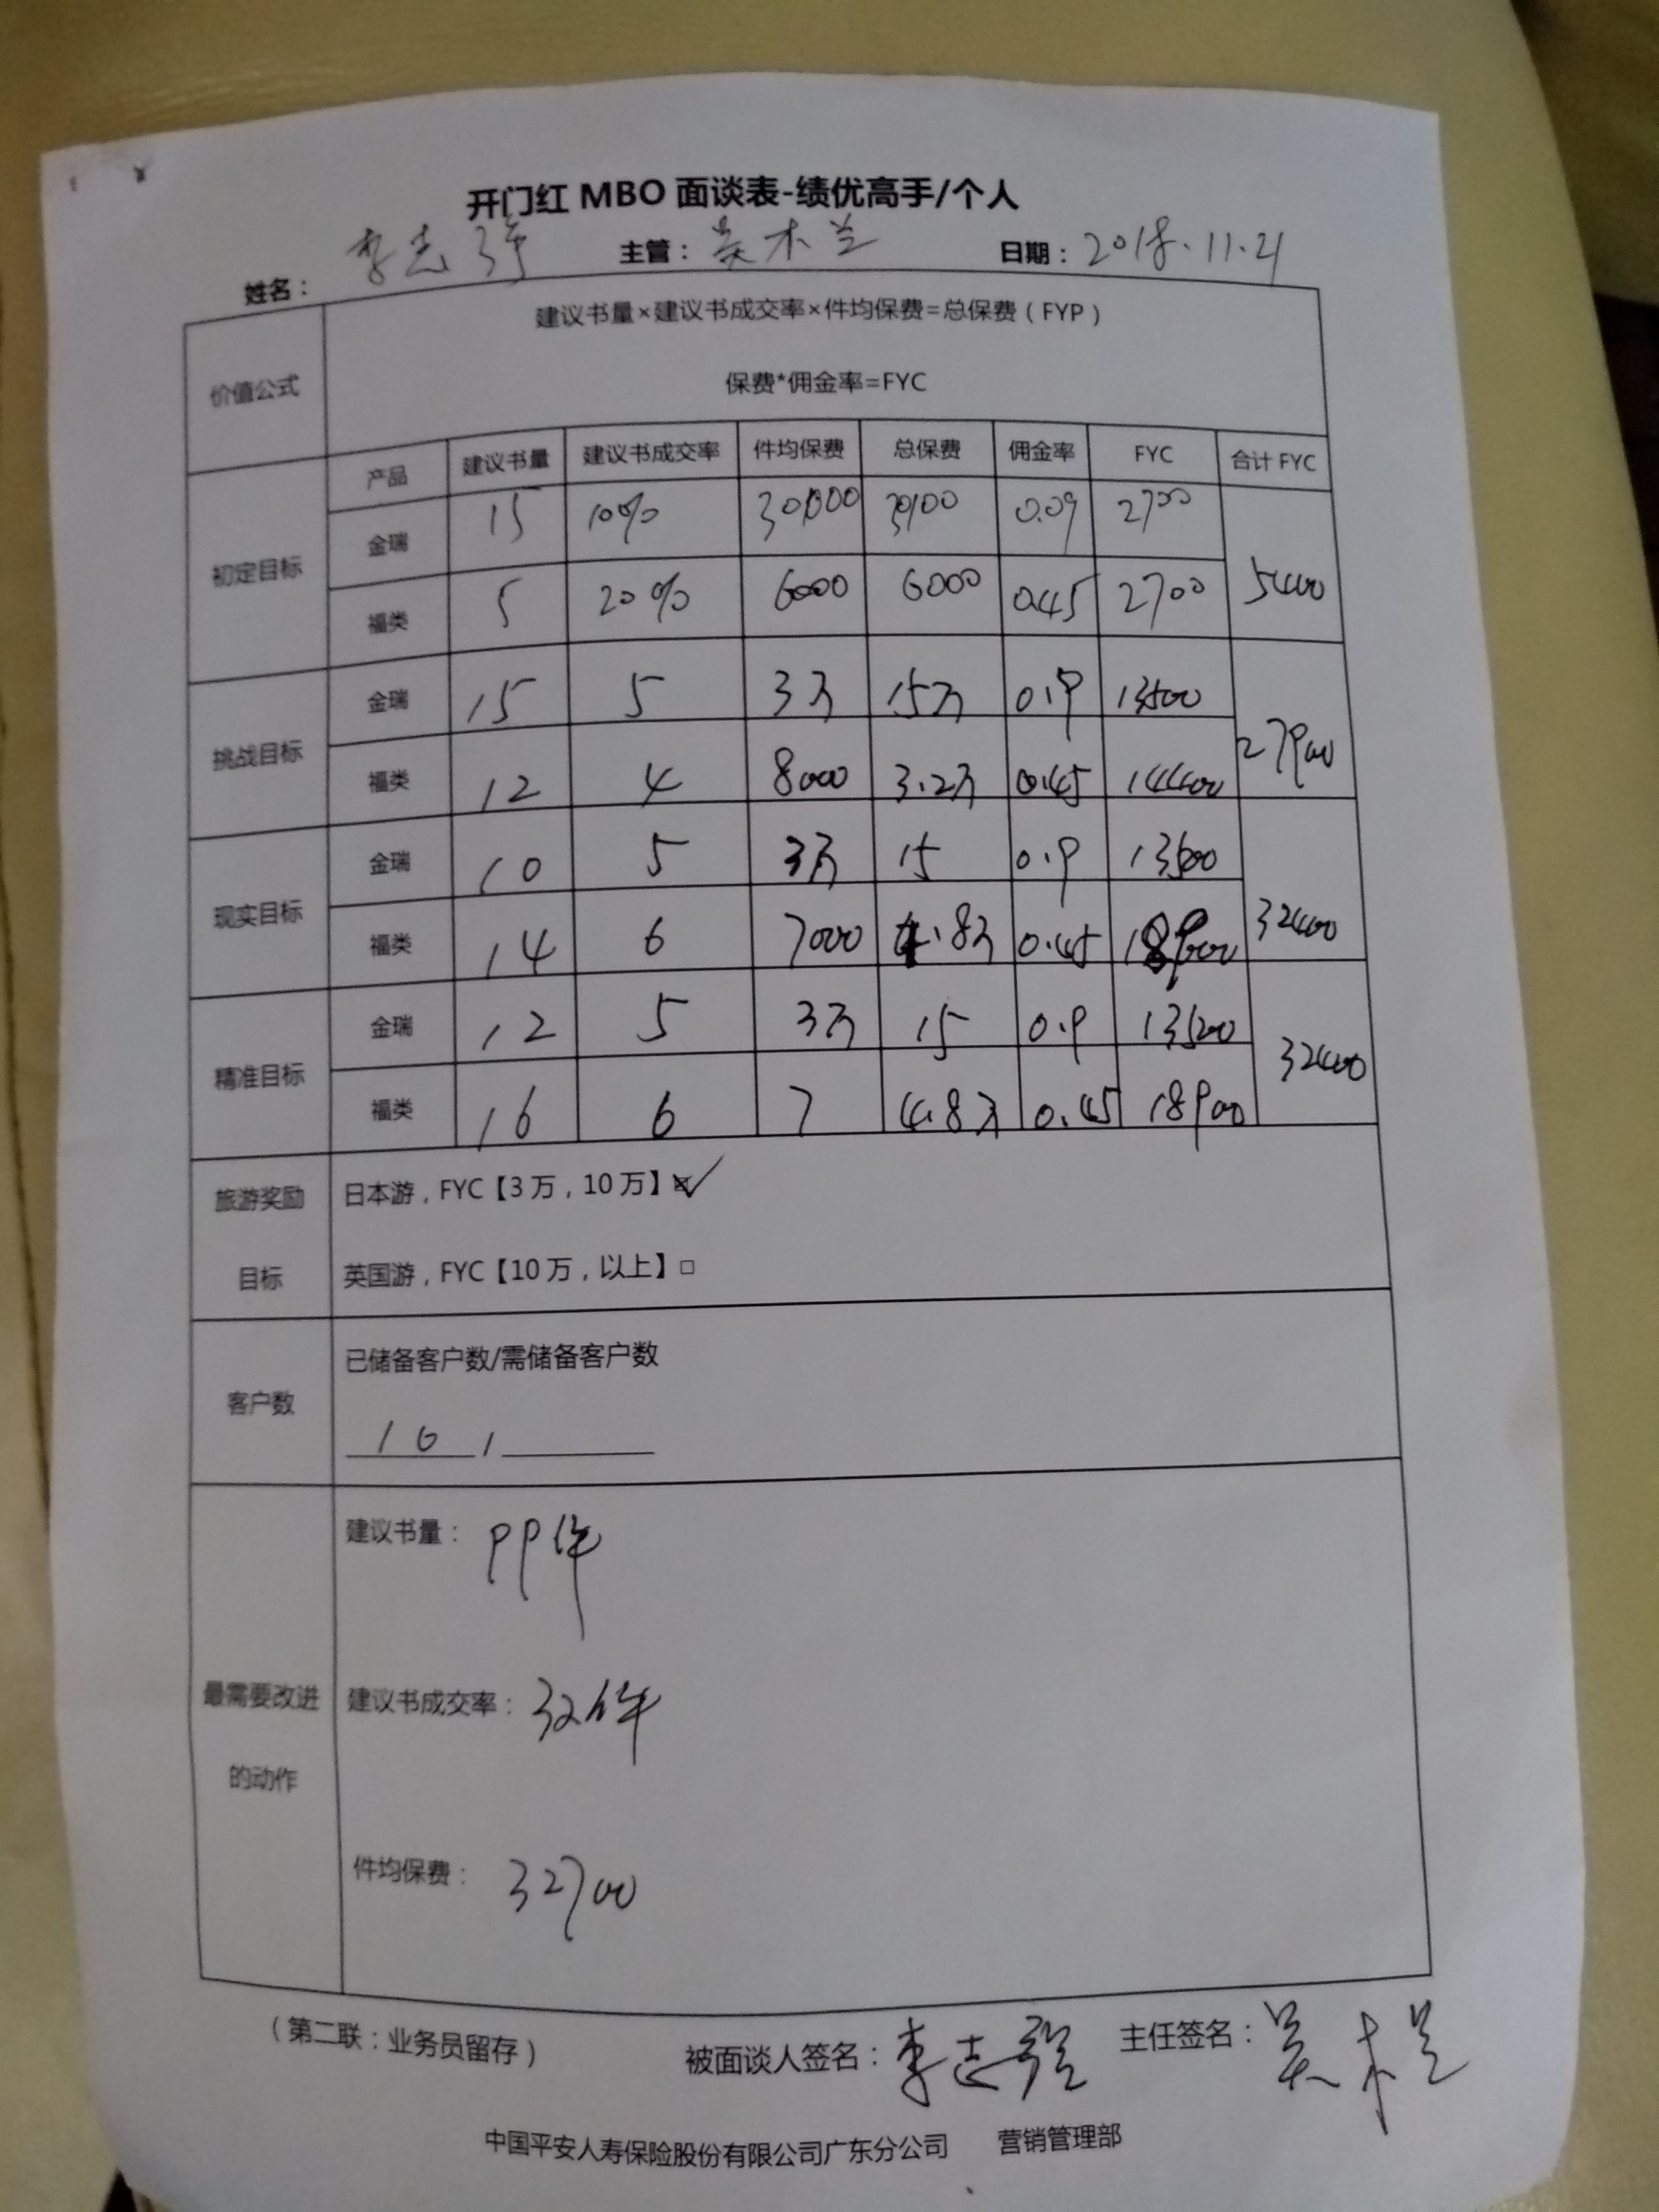 开门红 MBO 面谈表-绩优高手/个人
姓名： 李志强 主管： 吴木兰 日期： 2018.11.21
价值公式 建议书量×建议书成交率×件均保费=总保费（FYP）
保费*佣金率=FYC
产品 建议书量 建议书成交率 件均保费 总保费 佣金率 FYC 合计 FYC
初定目标 金瑞 15 10% 30000 0.09 2700 5400
福类 5 20% 6000 6000 0.45 2700
挑战目标 金瑞 15 5 3万 15万 0.9 13500 27900
福类 12 4 8000 3.2万 0.45 14400
现实目标 金瑞 10 5 3万 15 0.9 13500 32400
福类 14 6 7000 4.8万 0.45 18900
精准目标 金瑞 12 5 3万 15 0.9 13500 32400
福类 16 6 7 4.8万 0.45 18900
旅游奖励目标 日本游，FYC【3 万，10 万】☑
英国游，FYC【10 万，以上】□
客户数 已储备客户数/需储备客户数
10 /
最需要改进的动作 建议书量： 99件
建议书成交率： 32件
件均保费： 32700
（第二联：业务员留存） 被面谈人签名： 李志强 主任签名： 吴木兰
中国平安人寿保险股份有限公司广东分公司 营销管理部